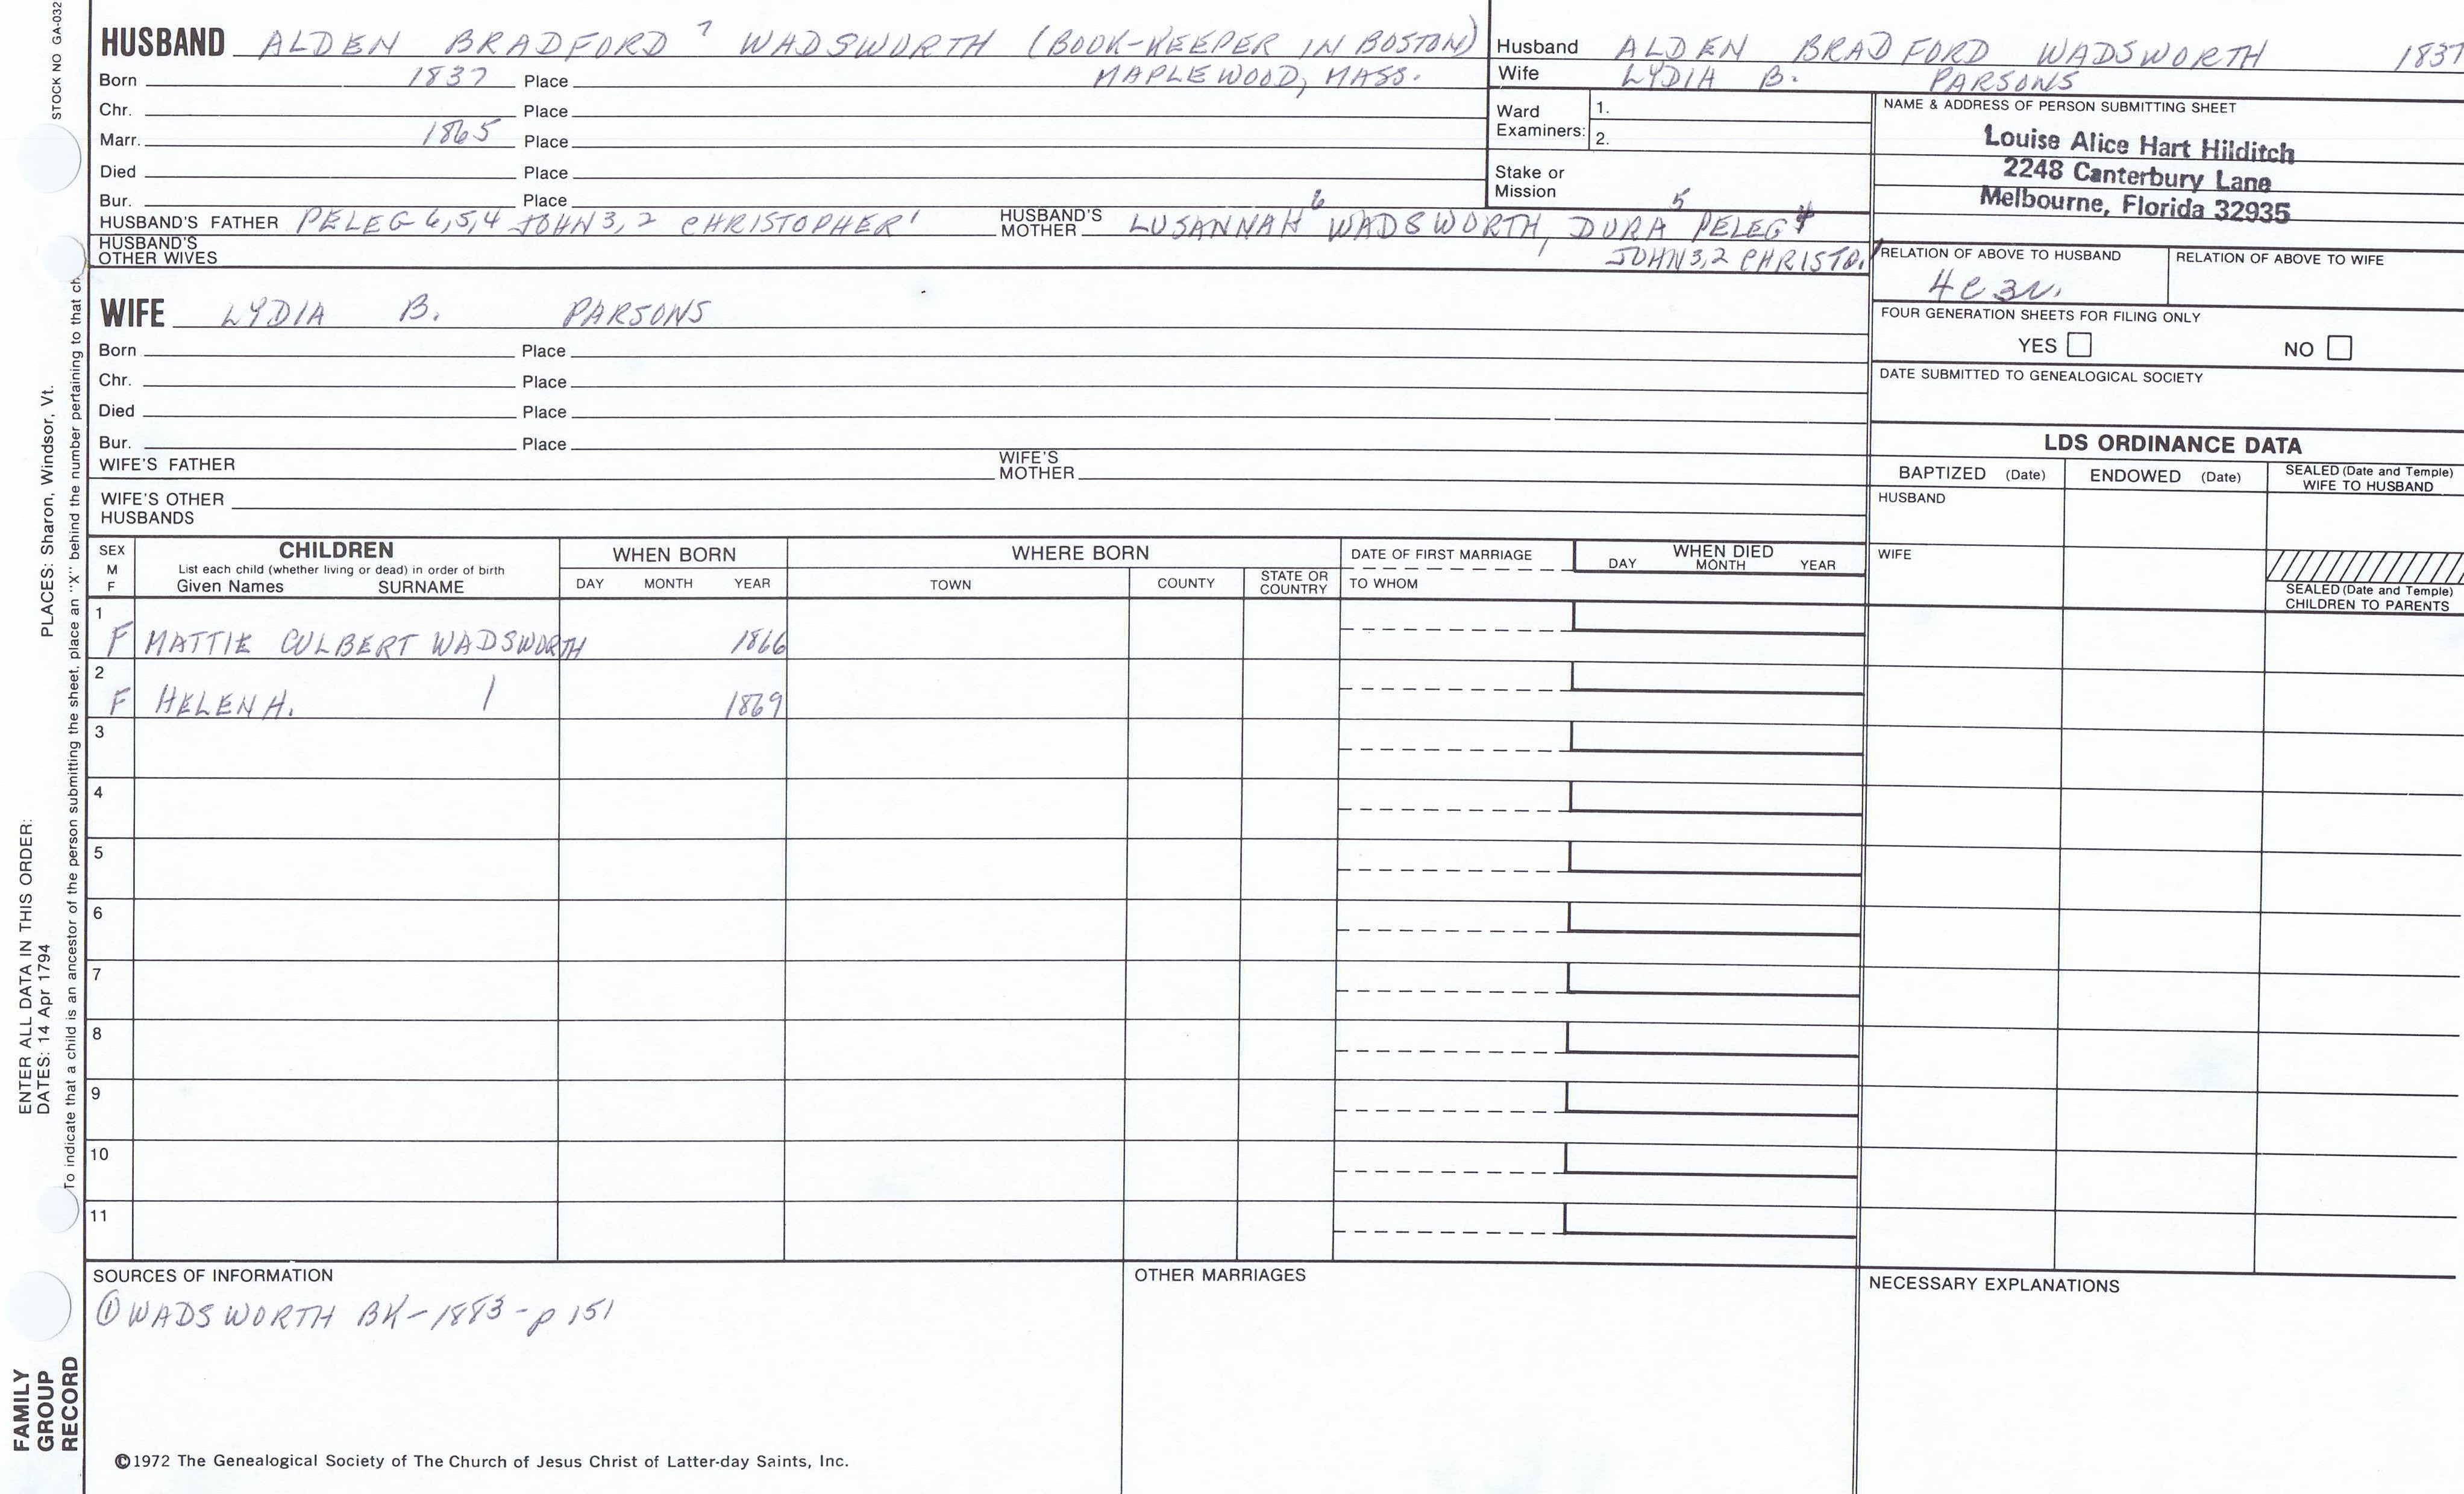 STOCK NO GA-032
PLACES: Sharon, Windsor, Vt.
ENTER ALL DATA IN THIS ORDER:
DATES: 14 Apr 1794
To indicate that a child is an ancestor of the person submitting the sheet, place an "X" behind the number pertaining to that ch
FAMILY
GROUP
RECORD
HUSBAND ALDEN BRADFORD 7 WADSWORTH (BOOK-KEEPER IN BOSTON)
Born 1837 Place MAPLEWOOD, MASS.
Chr. Place
Marr. 1865 Place
Died Place
Bur. Place
HUSBAND'S FATHER PELEG 6,5,4 JOHN 3,2 CHRISTOPHER 1 HUSBAND'S MOTHER LUSANNAH 6 WADSWORTH, DURA 5 PELEG 4
JOHN 3,2 CHRISTO. 1
HUSBAND'S OTHER WIVES
WIFE LYDIA B. PARSONS
Born Place
Chr. Place
Died Place
Bur. Place
WIFE'S FATHER WIFE'S MOTHER
WIFE'S OTHER HUSBANDS
Husband ALDEN BRADFORD WADSWORTH 1837
Wife LYDIA B. PARSONS
Ward Examiners: 1.
2.
Stake or Mission
NAME & ADDRESS OF PERSON SUBMITTING SHEET
Louise Alice Hart Hilditch
2248 Canterbury Lane
Melbourne, Florida 32935
RELATION OF ABOVE TO HUSBAND RELATION OF ABOVE TO WIFE
4C3R.
FOUR GENERATION SHEETS FOR FILING ONLY
YES NO
DATE SUBMITTED TO GENEALOGICAL SOCIETY
LDS ORDINANCE DATA
BAPTIZED (Date) ENDOWED (Date) SEALED (Date and Temple) WIFE TO HUSBAND
HUSBAND
WIFE
SEALED (Date and Temple) CHILDREN TO PARENTS
SEX M F
CHILDREN
List each child (whether living or dead) in order of birth
Given Names SURNAME
WHEN BORN
DAY MONTH YEAR
WHERE BORN
TOWN COUNTY STATE OR COUNTRY
DATE OF FIRST MARRIAGE
TO WHOM
WHEN DIED
DAY MONTH YEAR
1
F MATTIE CULBERT WADSWORTH 1866
2
F HELEN H. 1869
3
4
5
6
7
8
9
10
11
SOURCES OF INFORMATION
① WADSWORTH BK-1883-p 151
OTHER MARRIAGES
NECESSARY EXPLANATIONS
©1972 The Genealogical Society of The Church of Jesus Christ of Latter-day Saints, Inc.